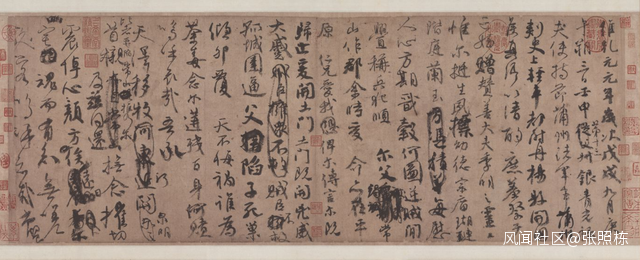 維乾元元年歲次戊戌九月庚
午朔三日壬申第十三叔銀青光祿
夫使持節蒲州諸軍事蒲州
刺史上輕車都尉丹楊縣開國
侯真卿以清酌庶羞祭于
亡姪贈贊善大夫季明之靈曰
惟爾挺生夙標幼德宗廟瑚璉
階庭蘭玉每慰
人心方期戩穀何圖逆賊間
釁稱兵犯順爾父竭誠常
山作郡余時受命亦在平
原仁兄愛我俾爾傳言爾既
歸止爰開土門土門既開凶威
大蹙賊臣不救
孤城圍逼父陷子死巢
傾卵覆天不悔禍誰為
荼毒念爾遘殘百身何贖
嗚乎哀哉吾承
天澤移牧河關泉明
首櫬及茲同還撫念摧切
震悼心顏方俟遠日
魂而有知無嗟
久客嗚呼哀哉尚饗
风闻社区@张照栋